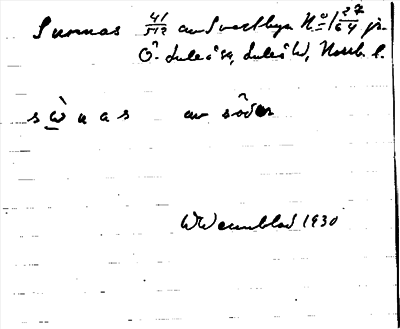 Sunnas 41/512 av Svartbyn No 1 27/64 jr.
Ö. Luleå sn, Luleå tr, Norrb. l.
sὼnas av söder
W Wennblad 1930